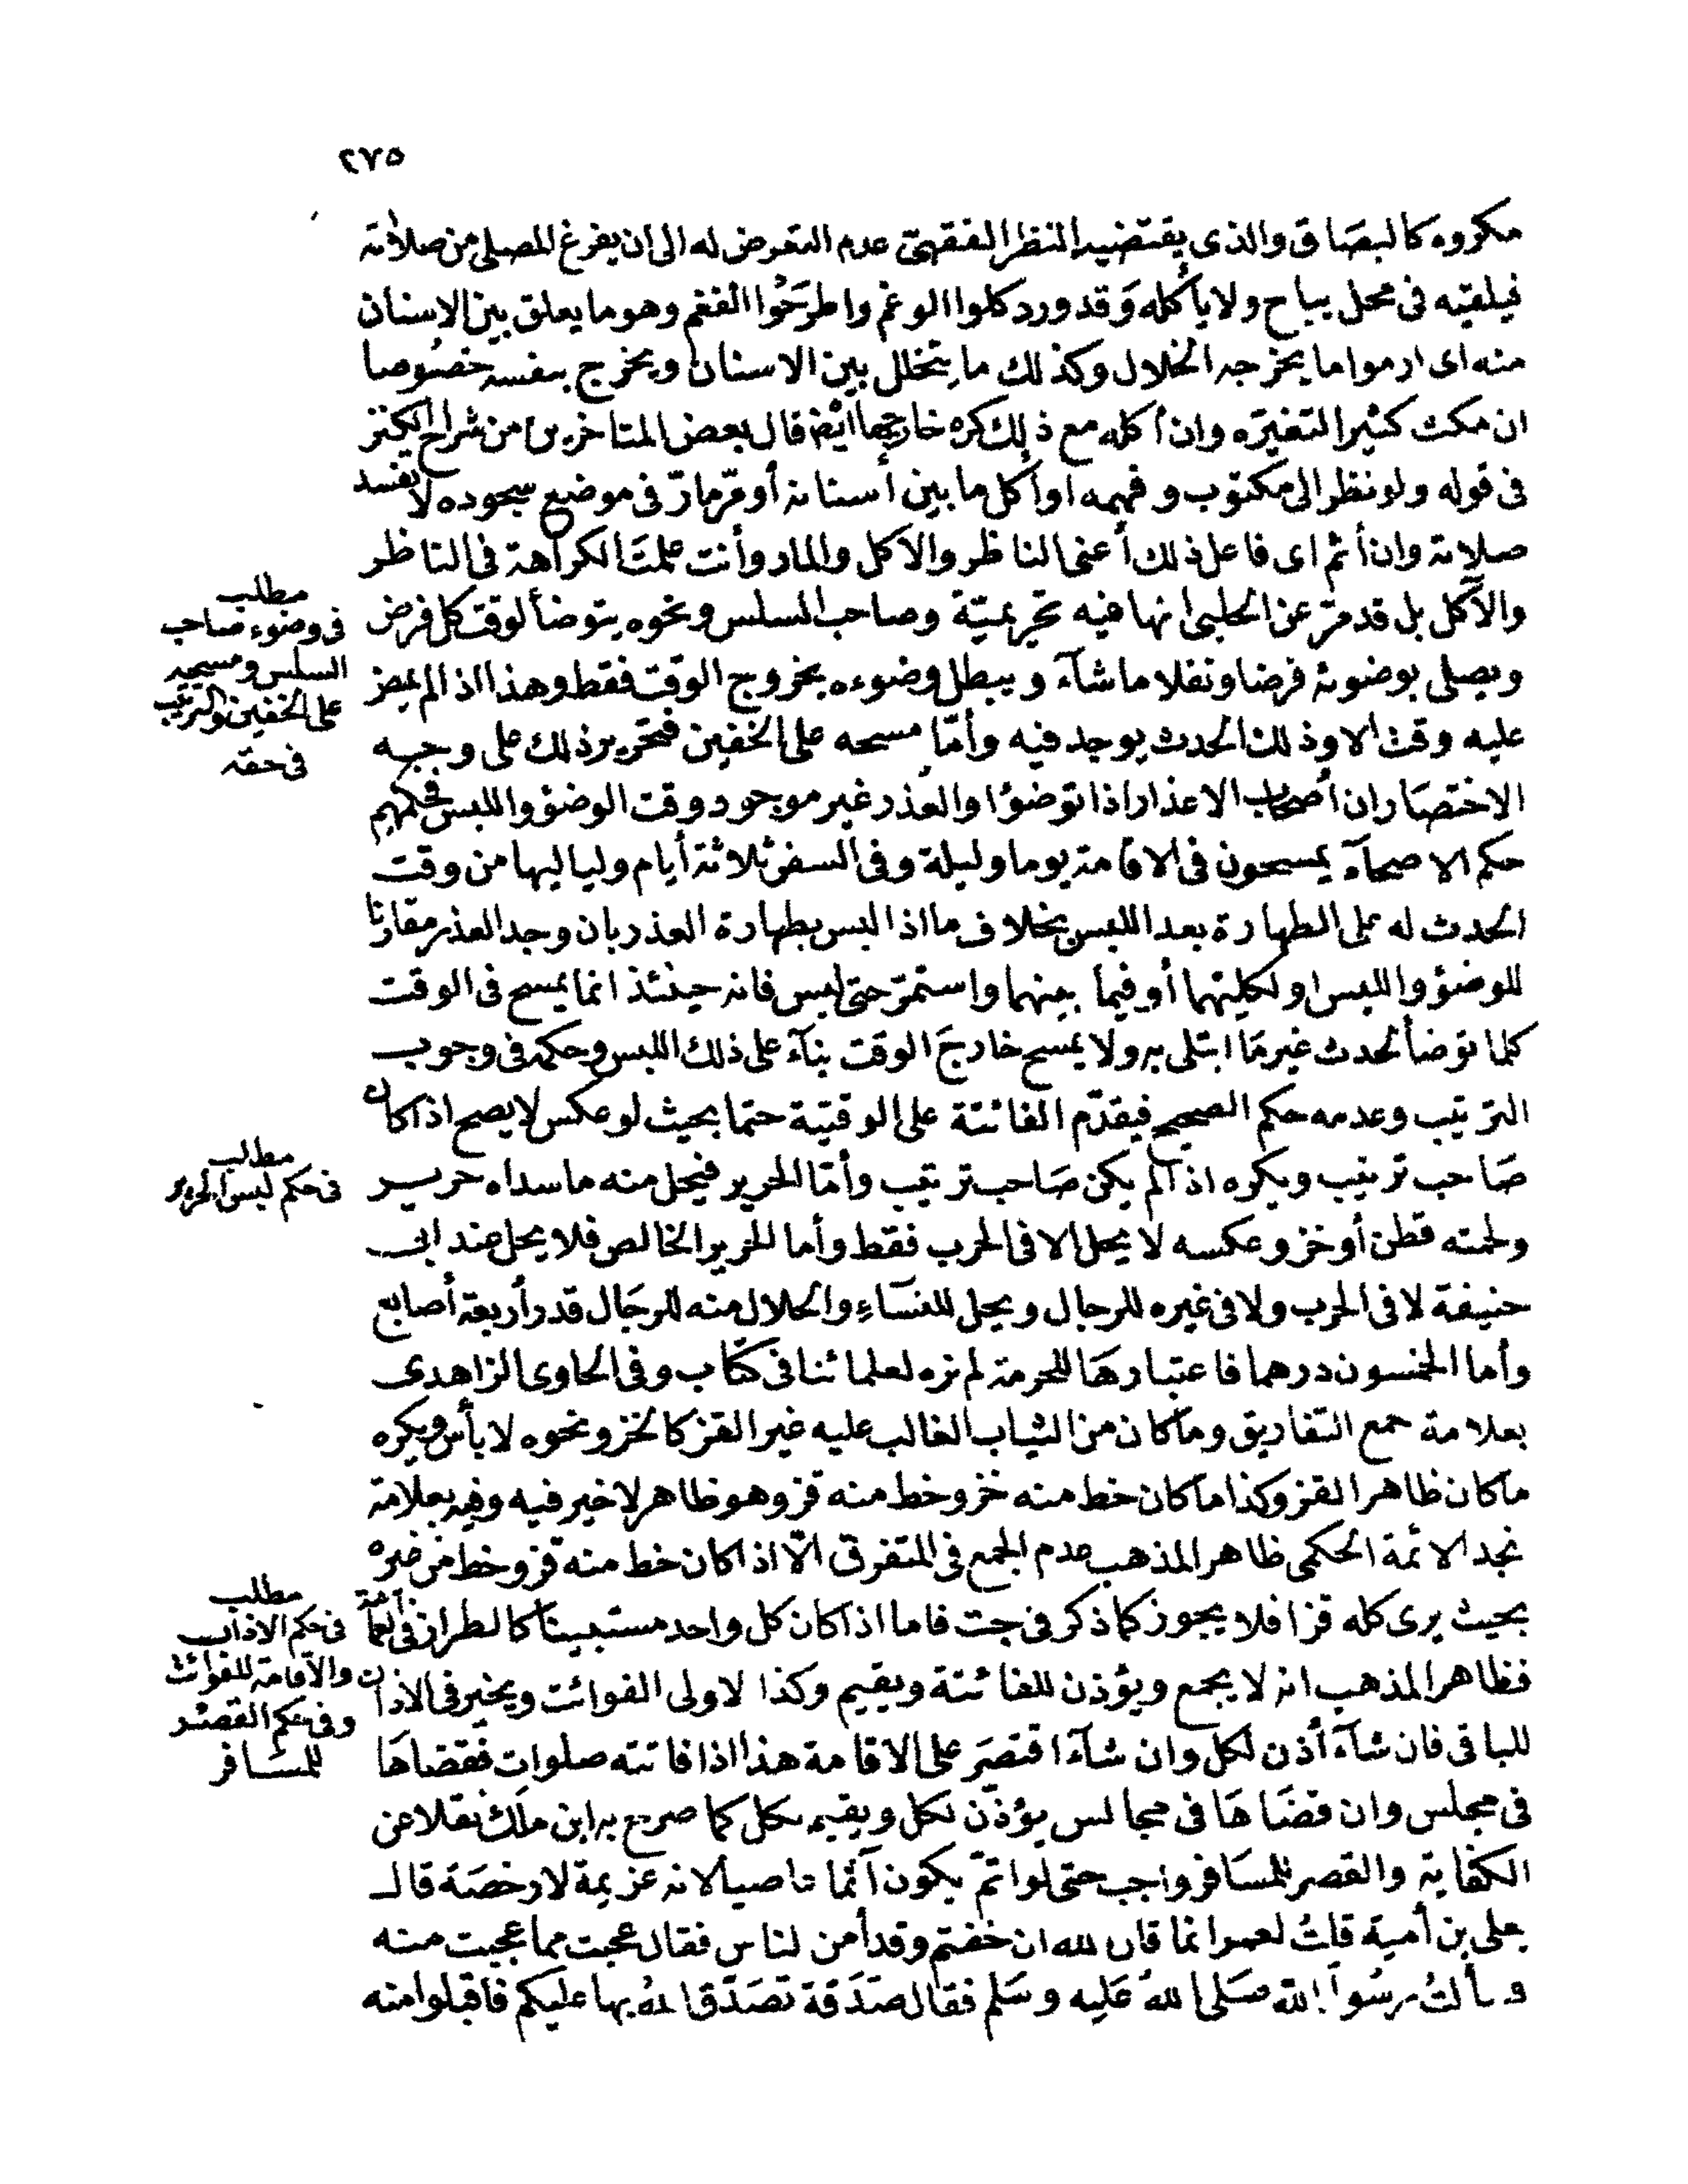 ٢٧٥
مكروه كالبصاق والذى يقتضيه النظر الفقهىّ عدم التعرض له الى ان يفرغ المصلى من صلاته
فيلقيه فى محل يباح ولا يأكله وَقد ورد كلوا الوغم واطرَحُوا الفغم وهو ما يعلق بين الاسنان
منه اى ارموا ما يخرجه الخلال وكذلك ما يتخلل بين الاسنان ويخرج بنفسه خصُوصا
ان مكث كثيرا لتغيّره وان أكله مع ذلك كره خارجها ايضا قال بعض المتاخرين من شراح الكنز
فى قوله ولو نظر الى مكتوب وفهمه او أكل ما بين أسنانه أو مرّ مارّ فى موضع سجوده لا تفسد
صلاته وان أثم اى فاعل ذلك أعنى الناظر والآكل والمار وأنت علمتَ الكراهة فى الناظر
والآكل بل قد مرّ عن الحلبى انها فيه تحريميّة وصاحب السلس ونحوه يتوضأ لوقت كل فرض
مطلب
فى وضوء صاحب
السلس ومسحه
على الخفين والترتيب
فى حقه
ويصلى بوضوئه فرضا ونفلا ما شآء ويبطل وضوءه بخروج الوقت فقط وهذا اذا لم يمض
عليه وقت الا وذلك الحدث يوجد فيه وأمّا مسحه على الخفين فتحرير ذلك على وجه
الاختصَار ان أصحاب الاعذار اذا توضؤا والعذر غير موجود وقت الوضؤ واللبس فحكمهم
حكم الاصحآء يمسحون فى الاقامة يوما وليلة وفى السفر ثلاثة أيام ولياليها من وقت
الحدث له على الطهارة بعد اللبس بخلاف ما اذا لبس بطهارة العذر بان وجد العذر مقارنا
للوضؤ واللبس او لكليتهما أو فيما بينهما واستمرّ حتى لبس فانه حينئذ انما يمسح فى الوقت
كلما توضأ لحدث غير مَا ابتلى به ولا يمسح خارجَ الوقت بنآء على ذلك اللبس وحكمه فى وجوب
الترتيب وعدمه حكم الصحيح فيقدّم الفائتة على الوقتية حتما بحيث لو عكس لا يصح اذا كان
صَاحب ترتيب ويكره اذا لم يكن صَاحب ترتيب وأمّا الحرير فيحل منه ما سداه حرير
مطلب
فى حكم لبس الحرير
ولحمته قطن أو خز وعكسه لا يحل الا فى الحرب فقط وأما الحرير الخالص فلا يحل عند ابى
حنيفة لا فى الحرب ولا فى غيره للرجال ويحل للنسَآءِ والحلال منه للرجَال قدر أربعة أصابع
وأما الخمسون درهما فاعتبارهَا للحرمة لم نره لعلمائنا فى كتاب وفى الحاوى الزاهدى
بعلامة جمع التفاريق وما كان من الثياب الغالب عليه غير القز كالخز ونحوه لا بأس ويكره
ما كان ظاهر القز وكذا ما كان خط منه خز وخط منه قز وهو ظاهر لا خير فيه وفيه بعلامة
نجد الائمة الحكمى ظاهر المذهب عدم الجمع فى المتفرق الّا اذا كان خط منه قز وخط من غيره
بحيث يرى كله قزا فلا يجوز كما ذكر فى جت فاما اذا كان كل واحد مستبينا كالطراز فى العمامة
مطلب
فى حكم الاذان
والاقامة للفوائت
وفى حكم القصر
للمسَافر
فظاهر المذهب انه لا يجمع ويؤذن للفائتة ويقيم وكذا لاولى الفوائت ويخير فى الاذان
للباقى فان شآء أذن لكل وان شآء اقتصَر على الاقامة هذا اذا فاتته صلوات فقضاهَا
فى مجلس وان قضَاهَا فى مجالس يؤذّن لكل ويقيم لكل كما صرح به ابن ملَك نقلا عن
الكفاية والقصر للمسَافر واجب حتى لو اتمّ يكون آثما عاصيا لانه عزيمة لا رخصَة قال
يعلى بن أمية قلتُ لعمر انما قال لله ان خفتم وقد أمن لناس فقال عجبت مما عجبت منه
وسألتُ رسُول اللّه صَلى للهُ عَليه وسَلم فقال صَدَقة تصَدّق للهُ بها عليكم فاقبلوا منه